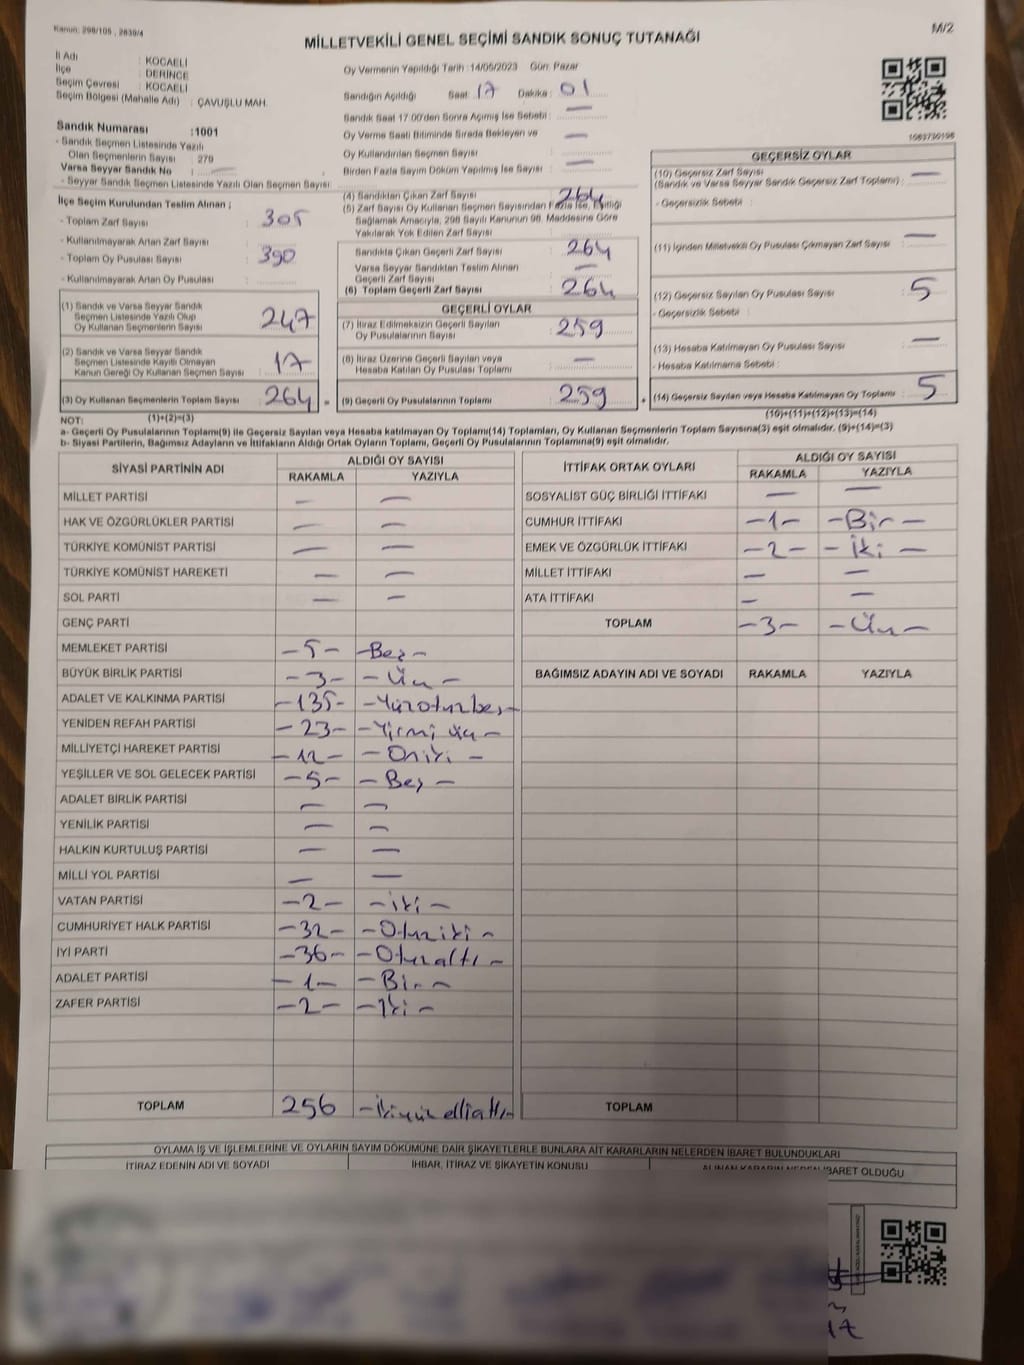 Kanun: 298/105 , 2839/4
M/2
MİLLETVEKİLİ GENEL SEÇİMİ SANDIK SONUÇ TUTANAĞI
İl Adı : KOCAELİ
İlçe : DERİNCE
Seçim Çevresi : KOCAELİ
Seçim Bölgesi (Mahalle Adı) : ÇAVUŞLU MAH.
Sandık Numarası :1001
- Sandık Seçmen Listesinde Yazılı
Olan Seçmenlerin Sayısı : 279
Varsa Seyyar Sandık No : —
- Seyyar Sandık Seçmen Listesinde Yazılı Olan Seçmen Sayısı
İlçe Seçim Kurulundan Teslim Alınan ;
- Toplam Zarf Sayısı : 305
- Kullanılmayarak Artan Zarf Sayısı :
- Toplam Oy Pusulası Sayısı : 390
- Kullanılmayarak Artan Oy Pusulası :
(1) Sandık ve Varsa Seyyar Sandık
Seçmen Listesinde Yazılı Olup
Oy Kullanan Seçmenlerin Sayısı : 247
(2) Sandık ve Varsa Seyyar Sandık
Seçmen Listesinde Kayıtlı Olmayan
Kanun Gereği Oy Kullanan Seçmen Sayısı : 17
(3) Oy Kullanan Seçmenlerin Toplam Sayısı : 264 =
Oy Vermenin Yapıldığı Tarih :14/05/2023 Gün: Pazar
Sandığın Açıldığı Saat: 17 Dakika: 01
Sandık Saat 17:00'den Sonra Açılmış İse Sebebi : —
Oy Verme Saati Bitiminde Sırada Bekleyen ve
Oy Kullandırılan Seçmen Sayısı : —
Birden Fazla Sayım Döküm Yapılmış İse Sayısı : —
(4) Sandıktan Çıkan Zarf Sayısı : 264
(5) Zarf Sayısı Oy Kullanan Seçmen Sayısından Fazla İse, Eşitliği
Sağlamak Amacıyla, 298 Sayılı Kanunun 98. Maddesine Göre
Yakılarak Yok Edilen Zarf Sayısı :
Sandıkta Çıkan Geçerli Zarf Sayısı : 264
Varsa Seyyar Sandıktan Teslim Alınan
Geçerli Zarf Sayısı : —
(6) Toplam Geçerli Zarf Sayısı : 264
GEÇERLİ OYLAR
(7) İtiraz Edilmeksizin Geçerli Sayılan
Oy Pusulalarının Sayısı : 259
(8) İtiraz Üzerine Geçerli Sayılan veya
Hesaba Katılan Oy Pusulası Toplamı : —
(9) Geçerli Oy Pusulalarının Toplamı : 259 +
GEÇERSİZ OYLAR
(10) Geçersiz Zarf Sayısı
(Sandık ve Varsa Seyyar Sandık Geçersiz Zarf Toplamı) : —
- Geçersizlik Sebebi :
(11) İçinden Milletvekili Oy Pusulası Çıkmayan Zarf Sayısı : —
(12) Geçersiz Sayılan Oy Pusulası Sayısı : 5
- Geçersizlik Sebebi :
(13) Hesaba Katılmayan Oy Pusulası Sayısı : —
- Hesaba Katılmama Sebebi :
(14) Geçersiz Sayılan veya Hesaba Katılmayan Oy Toplamı : 5
NOT: (1)+(2)=(3) (10)+(11)+(12)+(13)=(14)
a- Geçerli Oy Pusulalarının Toplamı(9) ile Geçersiz Sayılan veya Hesaba katılmayan Oy Toplamı(14) Toplamları, Oy Kullanan Seçmenlerin Toplam Sayısına(3) eşit olmalıdır. (9)+(14)=(3)
b- Siyasi Partilerin, Bağımsız Adayların ve İttifakların Aldığı Ortak Oyların Toplamı, Geçerli Oy Pusulalarının Toplamına(9) eşit olmalıdır.
SİYASİ PARTİNİN ADI ALDIĞI OY SAYISI
RAKAMLA YAZIYLA
MİLLET PARTİSİ — —
HAK VE ÖZGÜRLÜKLER PARTİSİ — —
TÜRKİYE KOMÜNİST PARTİSİ — —
TÜRKİYE KOMÜNİST HAREKETİ — —
SOL PARTİ — —
GENÇ PARTİ
MEMLEKET PARTİSİ -5- -Beş-
BÜYÜK BİRLİK PARTİSİ -3- -Üç-
ADALET VE KALKINMA PARTİSİ -135- -Yüzotuzbeş-
YENİDEN REFAH PARTİSİ -23- -Yirmi üç-
MİLLİYETÇİ HAREKET PARTİSİ -12- -Oniki-
YEŞİLLER VE SOL GELECEK PARTİSİ -5- -Beş-
ADALET BİRLİK PARTİSİ — —
YENİLİK PARTİSİ — —
HALKIN KURTULUŞ PARTİSİ — —
MİLLİ YOL PARTİSİ — —
VATAN PARTİSİ -2- -iki-
CUMHURİYET HALK PARTİSİ -32- -Otuziki-
İYİ PARTİ -36- -Otuzaltı-
ADALET PARTİSİ -1- -Bir-
ZAFER PARTİSİ -2- -İki-
TOPLAM 256 -İkiyüzelliattı-
İTTİFAK ORTAK OYLARI ALDIĞI OY SAYISI
RAKAMLA YAZIYLA
SOSYALİST GÜÇ BİRLİĞİ İTTİFAKI — —
CUMHUR İTTİFAKI -1- -Bir-
EMEK VE ÖZGÜRLÜK İTTİFAKI -2- -İki-
MİLLET İTTİFAKI — —
ATA İTTİFAKI — —
TOPLAM -3- -Üç-
BAĞIMSIZ ADAYIN ADI VE SOYADI RAKAMLA YAZIYLA
TOPLAM
OYLAMA İŞ VE İŞLEMLERİNE VE OYLARIN SAYIM DÖKÜMÜNE DAİR ŞİKAYETLERLE BUNLARA AİT KARARLARIN NELERDEN İBARET BULUNDUKLARI
İTİRAZ EDENİN ADI VE SOYADI İHBAR, İTİRAZ VE ŞİKAYETİN KONUSU ALINAN KARARIN NEDEN İBARET OLDUĞU